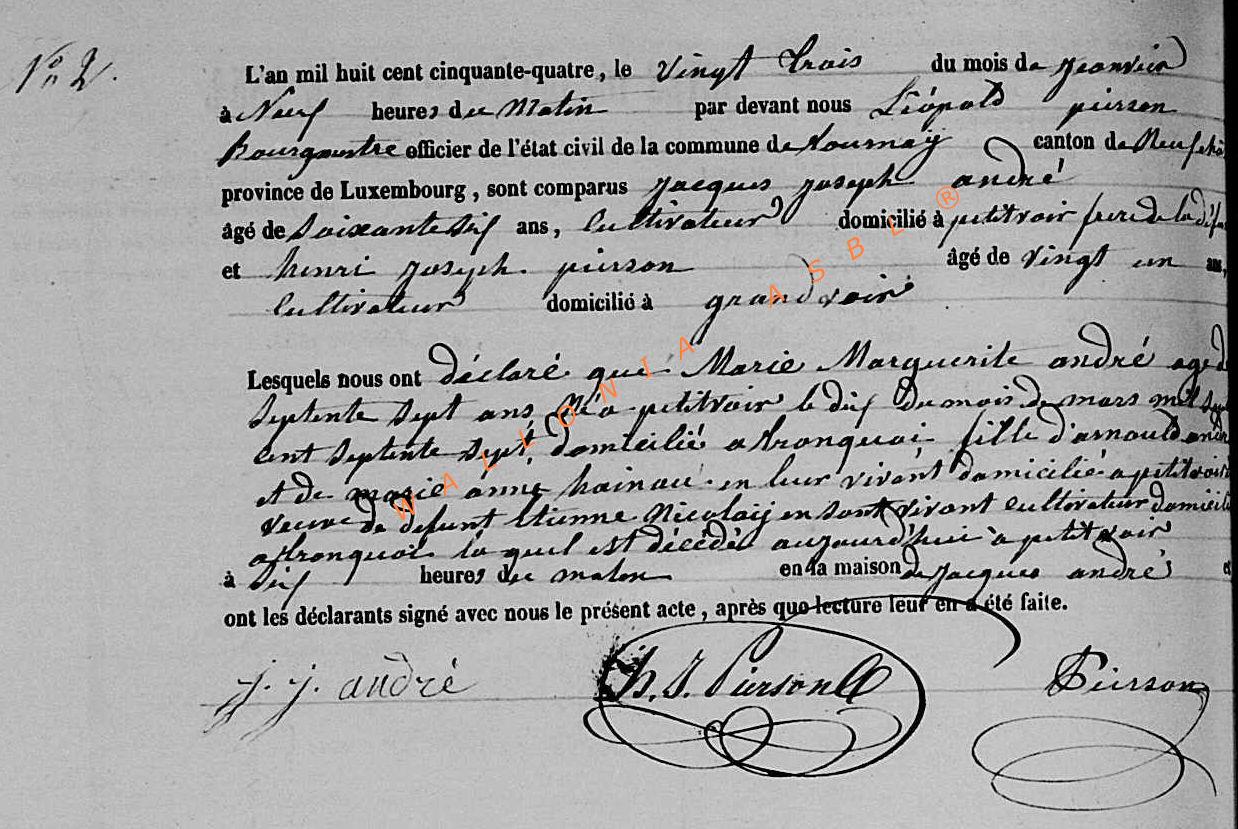 No 2.
L'an mil huit cent cinquante-quatre, le vingt trois du mois de Janvier
à Neuf heures du Matin par devant nous Léopold pierson
Bourgmestre officier de l'état civil de la commune de tournay canton de Neufchâ
province de Luxembourg, sont comparus Jacques Joseph andré
âgé de Soixante dix ans, Cultivateur domicilié à petitvoir frere de la défu
et henri Joseph pierson âgé de vingt un ans,
Cultivateur domicilié à grandvoir
Lesquels nous ont déclaré que Marie Marguerite andré agé de
Septente Sept ans Né a petitvoir le dix du mois de mars mil Sept
cent Septente Sept, domicilié a tronquoi fille d'arnould andr
et de marie anne hainau en leur vivant domicilié a petitvoir
veuve de defunt Etienne Nicolaij en sont vivant cultivateur domicilié
a tronquoi la quel est décédé aujourd'hui à petitvoir
à dix heures du maten en la maison de Jacques andré et
ont les déclarants signé avec nous le présent acte, après que lecture leur en a été faite.
j. j. andré H. J. Pierson Pierson
WALLONIA ASBL ®